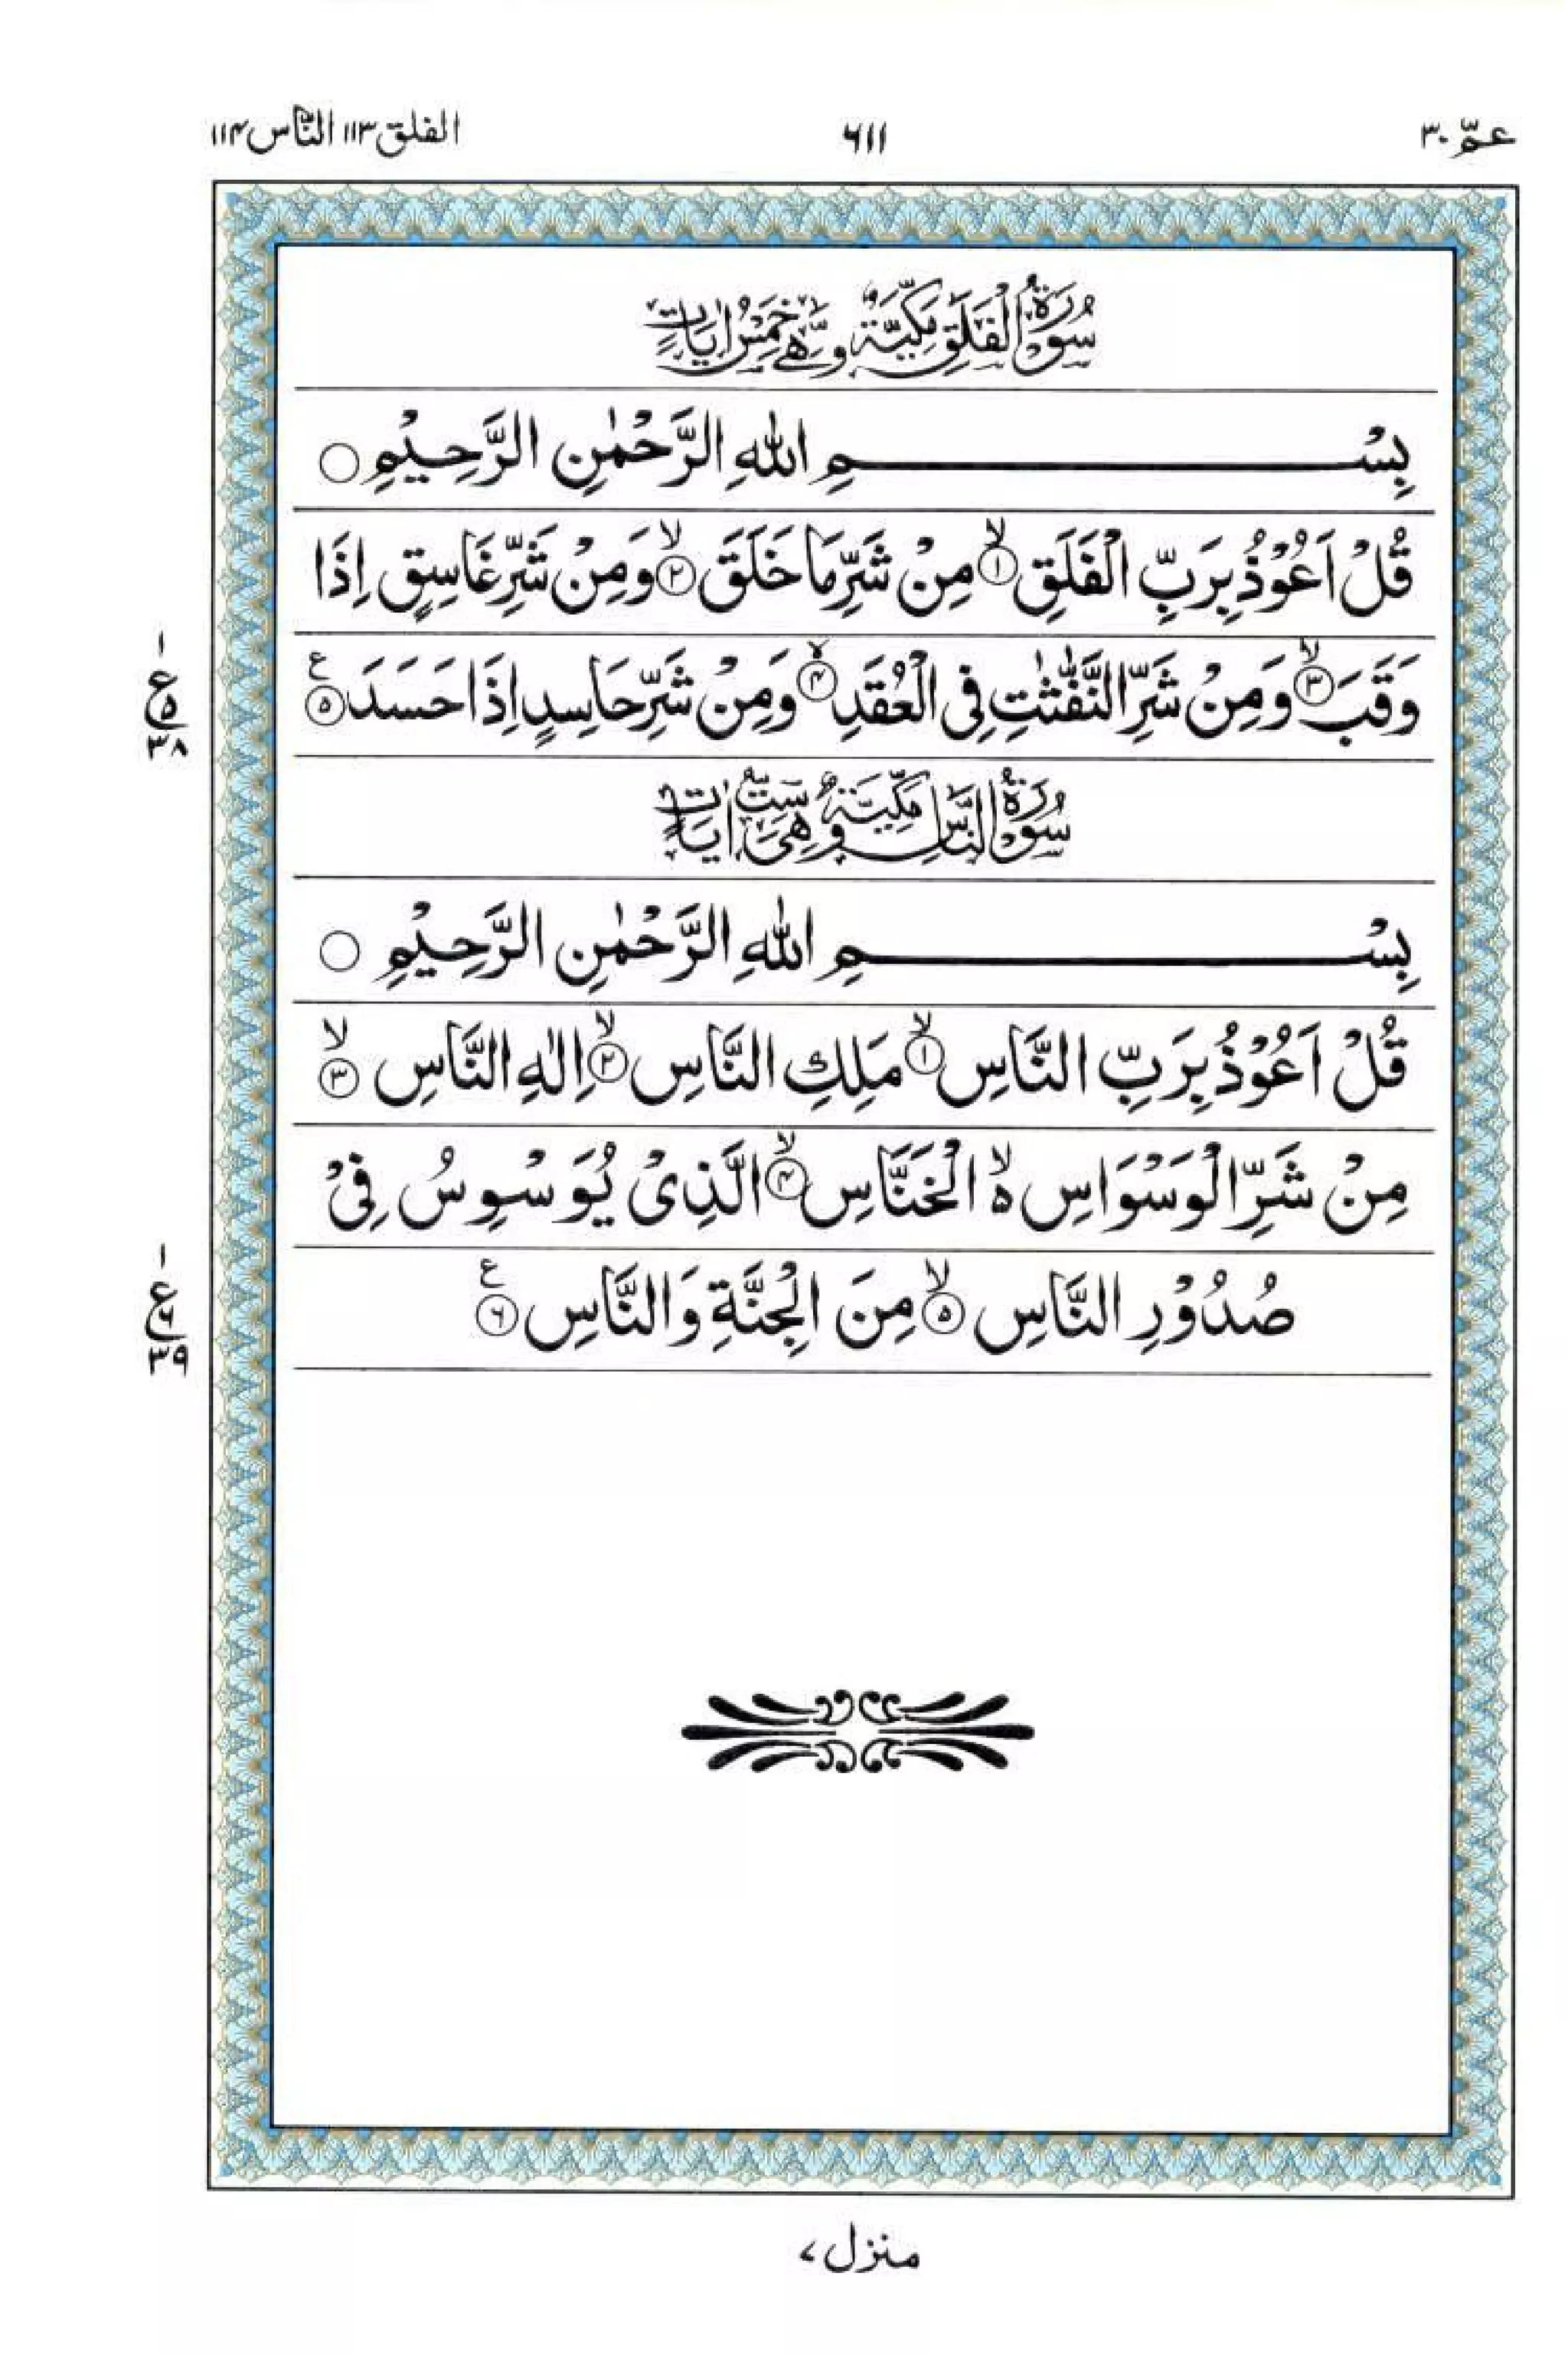 عمّ ۳۰
۶۱۱
الفلق ۱۱۳ النّاس ۱۱۴
سُوْرَةُ الْفَلَقِ مَكِّيَّةٌ وَّهِيَ خَمْسُ اٰيَاتٍ
بِسْمِ اللهِ الرَّحْمٰنِ الرَّحِيْمِ ○
قُلْ اَعُوْذُ بِرَبِّ الْفَلَقِ ۙ﴿۱﴾ مِنْ شَرِّ مَا خَلَقَ ۙ﴿۲﴾ وَمِنْ شَرِّ غَاسِقٍ اِذَا
وَقَبَ ۙ﴿۳﴾ وَمِنْ شَرِّ النَّفّٰثٰتِ فِى الْعُقَدِ ۙ﴿۴﴾ وَمِنْ شَرِّ حَاسِدٍ اِذَا حَسَدَ ﴿۵﴾ ع
۱
ع ۵
۳۸
سُوْرَةُ النَّاسِ مَكِّيَّةٌ وَّهِىَ سِتُّ اٰيَاتٍ
بِسْمِ اللهِ الرَّحْمٰنِ الرَّحِيْمِ ○
قُلْ اَعُوْذُ بِرَبِّ النَّاسِ ۙ﴿۱﴾ مَلِكِ النَّاسِ ۙ﴿۲﴾ اِلٰهِ النَّاسِ ۙ﴿۳﴾
مِنْ شَرِّ الْوَسْوَاسِ ۵ۙ الْخَنَّاسِ ۙ﴿۴﴾ الَّذِىْ يُوَسْوِسُ فِىْ
صُدُوْرِ النَّاسِ ۙ﴿۵﴾ مِنَ الْجِنَّةِ وَالنَّاسِ ﴿۶﴾ ع
۱
ع ۶
۳۹
منزل ۷